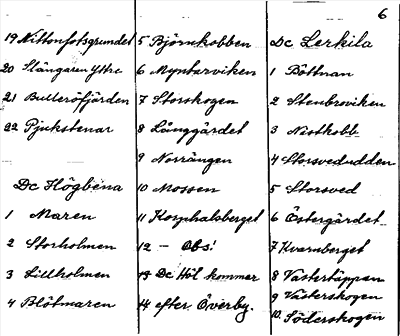 6
19 Nittonfotsgrundet
20 Stångaren Yttre
21 Bulleröfjärden
22 Pjukstenar
Dc Högbena
1 Maren
2 Storholmen
3 Lillholmen
4 Blötmaren
5 Björnkobben
6 Myntarviken
7 Storskogen
8 Långgärdet
9 Norrängen
10 Mossen
11 Korphalsberget
12 - Obs!
13 Dc Höl kommer
14 efter Överby.
Dc Lerkila
1 Böttnan
2 Stenbroviken
3 Nöstkobb
4 Storsvedudden
5 Storsved
6 Östergärdet
7 Kvarnberget
8 Västertäppan
9 Västerskogen
10 Söderskogen